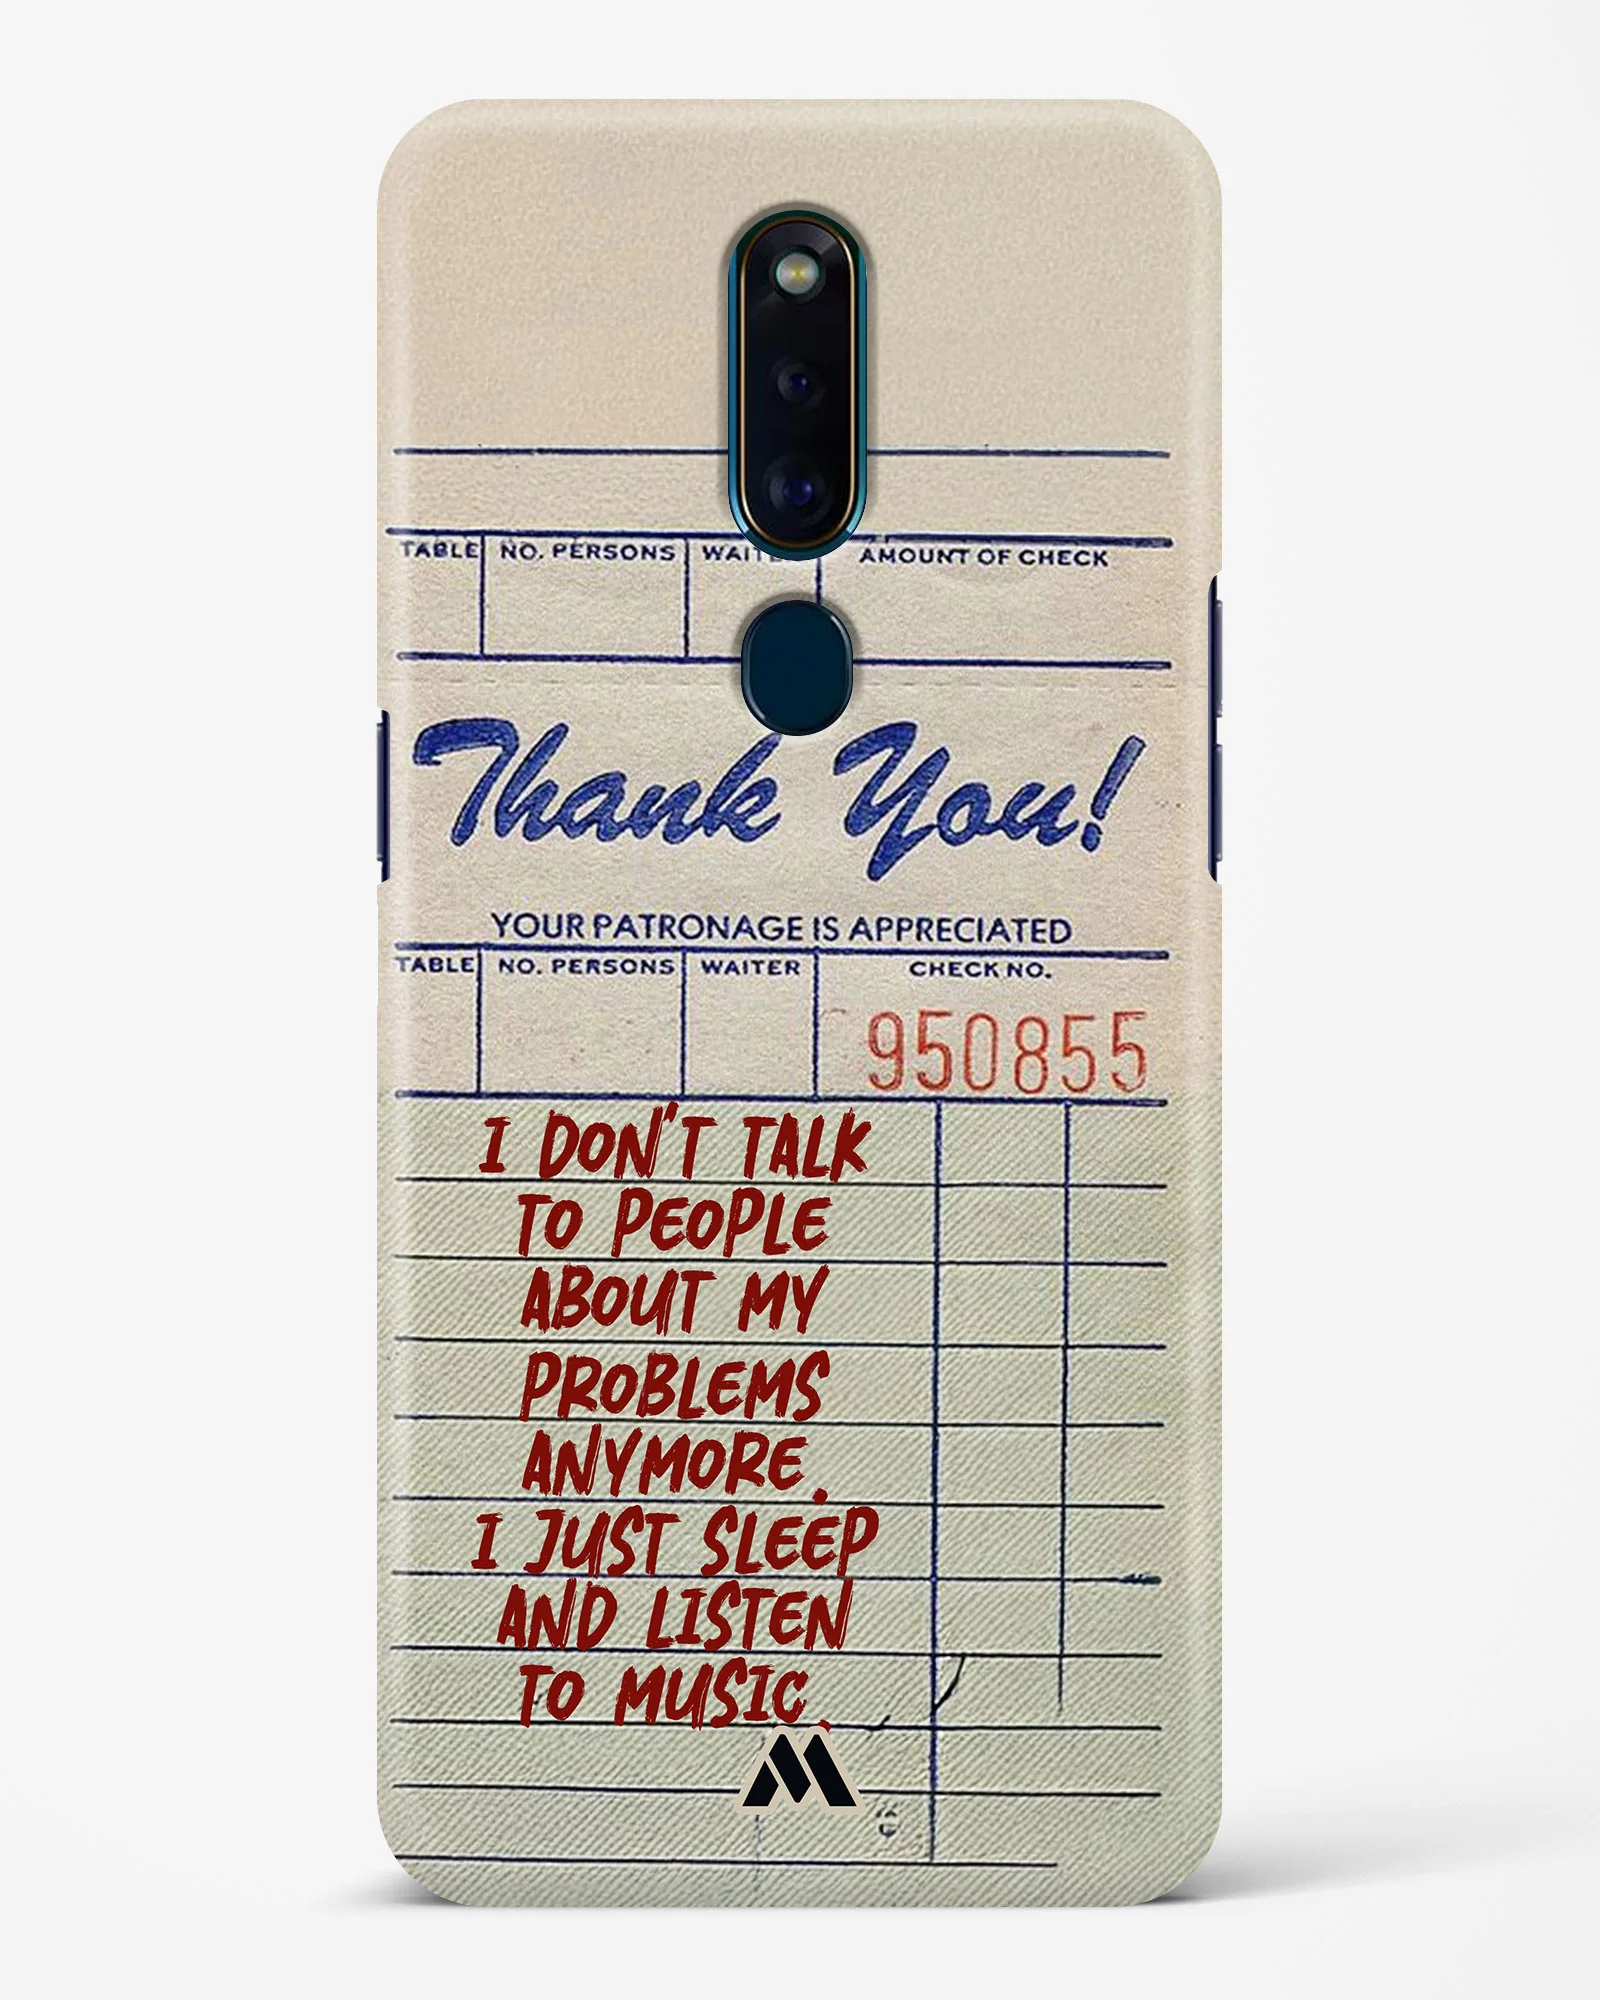 TABLE NO. PERSONS WAITER AMOUNT OF CHECK
Thank You!
YOUR PATRONAGE IS APPRECIATED
TABLE NO. PERSONS WAITER CHECK NO.
950855
I DON'T TALK
TO PEOPLE
ABOUT MY
PROBLEMS
ANYMORE.
I JUST SLEEP
AND LISTEN
TO MUSIC.